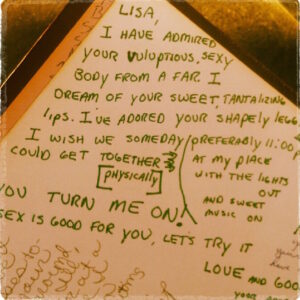 LISA,
I HAVE ADMIRED
YOUR VULUPTIOUS, SEXY
BODY FROM A FAR I
DREAM OF YOUR SWEET, TANTALIZING
LIPS. I'VE ADORED YOUR SHAPELY LEGS
I WISH WE SOMEDAY
COULD GET TOGETHER
[PHYSICALLY]
PREFERABLY 11:00
AT MY PLACE
WITH THE LIGHTS
OUT
AND SWEET
MUSIC ON
YOU TURN ME ON!
SEX IS GOOD FOR YOU, LET'S TRY IT
LOVE AND